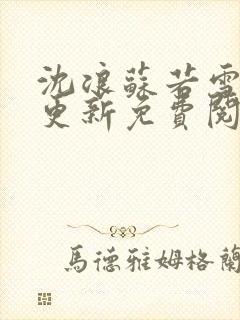 沈浪蘇若雪
更新免費閱
馬德雅姆格蘭